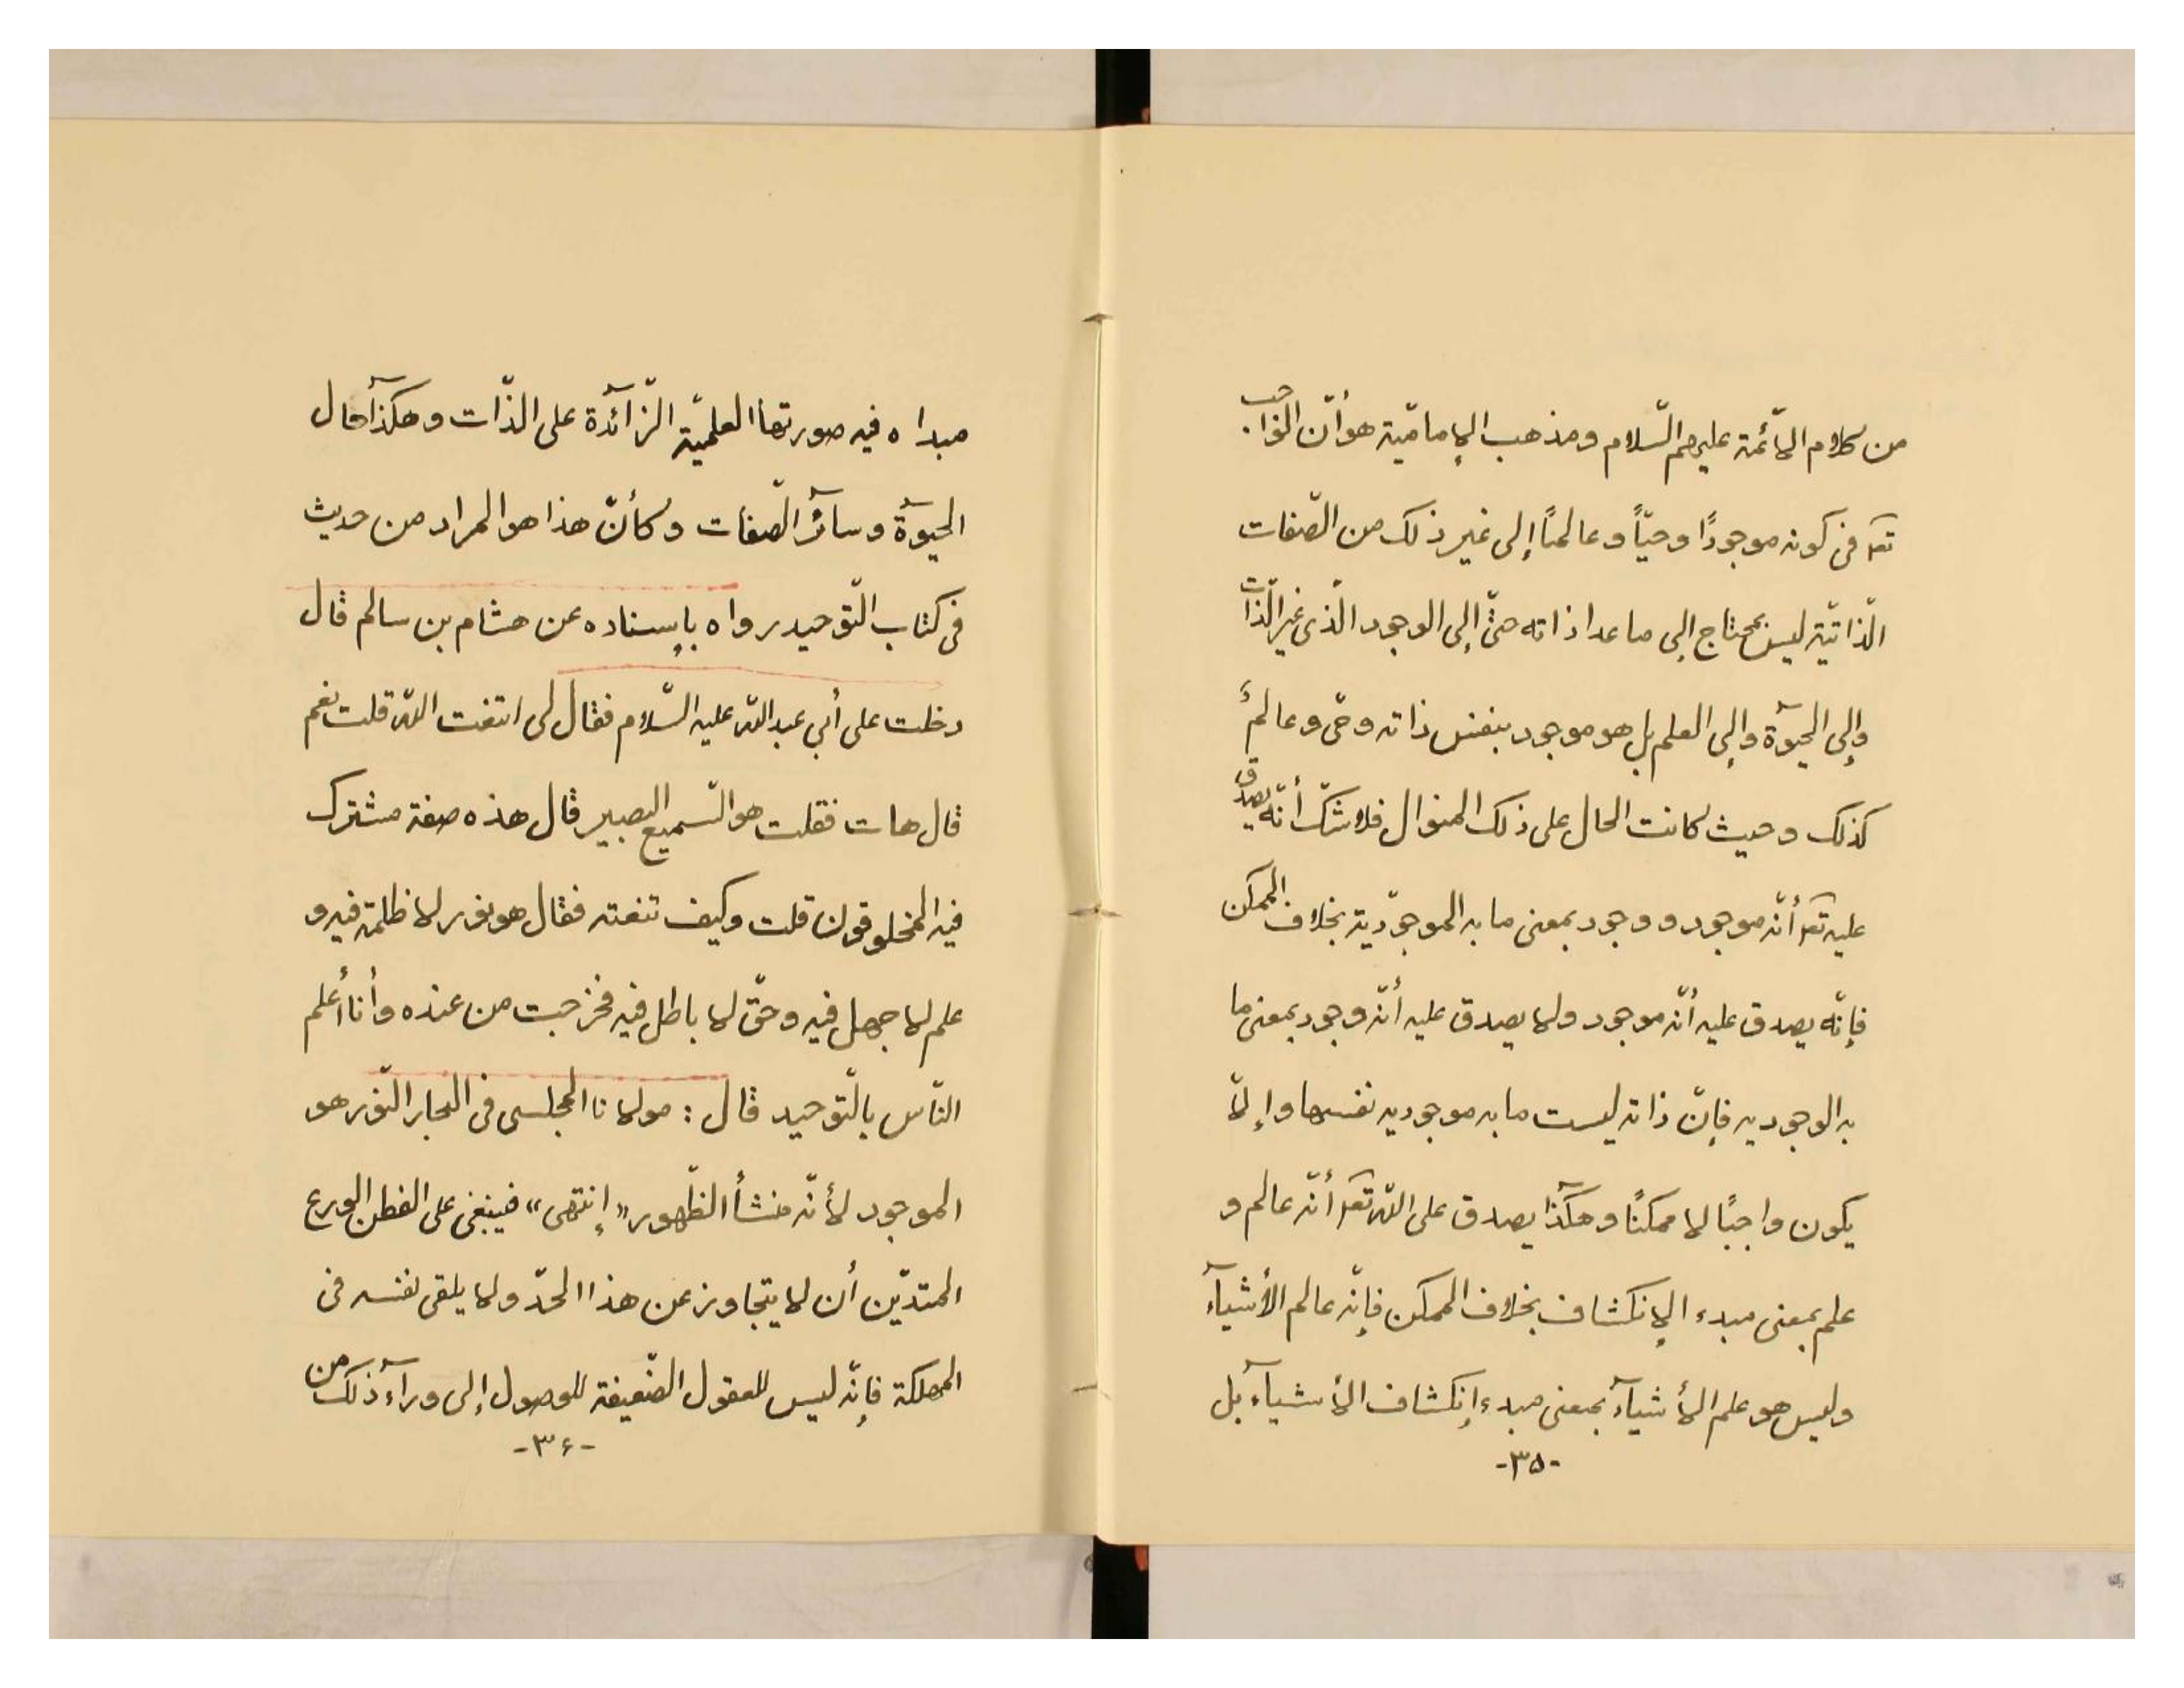 من كلام الأئمّة عليهم السّلام ومذهب الإماميّة هو أنّ الواجب
تعـ فى كونه موجودًا وحيّاً وعالمًا إلى غير ذلك من الصّفات
الذّاتيّة ليس بمحتاج إلى ما عدا ذاته حتّى إلى الوجود الّذى غير الذّات
وإلى الحيوٓة وإلى العلم بل هو موجود بنفس ذاته وحىّ وعالمٌ
كذلك وحيث كانت الحال على ذلك المنوال فلا شكّ أنّه يصدق
عليه تعـ أنّه موجود ووجود بمعنى ما به الموجوديّة بخلاف الممكن
فإنّه يصدق عليه أنّه موجود ولا يصدق عليه أنّه وجود بمعنى ما
به الوجوديه فإنّ ذاته ليست ما به موجوديه نفسها وإلاّ
يكون واجبًا لا ممكنًا وهكذٓا يصدق على اللّه تعـ أنّه عالم و
علم بمعنى مبدء الإنكشاف بخلاف الممكن فإنّه عالم الأشيآء
وليس هو علم الأشيآء بمعنى مبدء إنكشاف الأشيآء بل
-٣٥-
مبداه فيه صورتها العلميّة الزّآئدة على الذّات وهكذٓا حال
الحيوٓة وسآئر الصّفات وكأنّ هذا هو المراد من حديث
فى كتاب التّوحيد رواه بإسناده عن هشام بن سالم قال
دخلت على أبي عبد اللّه عليه السّلام فقال لى اتنعت اللّه قلت نعم
قال هات فقلت هو السّميع البصير قال هذه صفة مشترك
فيه المخلوقون قلت وكيف تنعته فقال هو نور لا ظلمة فيه و
علم لا جهل فيه وحقّ لا باطل فيه فخرجت من عنده وأنا أعلم
النّاس بالتّوحيد قال : مولانا المجلسى فى البحار النّور هو
الموجود لأنّه منشأ الظّهور «إنتهى» فينبغى على الفطن الورع
المتديّن أن لا يتجاوز عن هذا الحدّ ولا يلقى نفسه فى
المهلكة فإنّه ليس للعقول الضّعيفة للوصول إلى ورآء ذلك من
-٣۶-